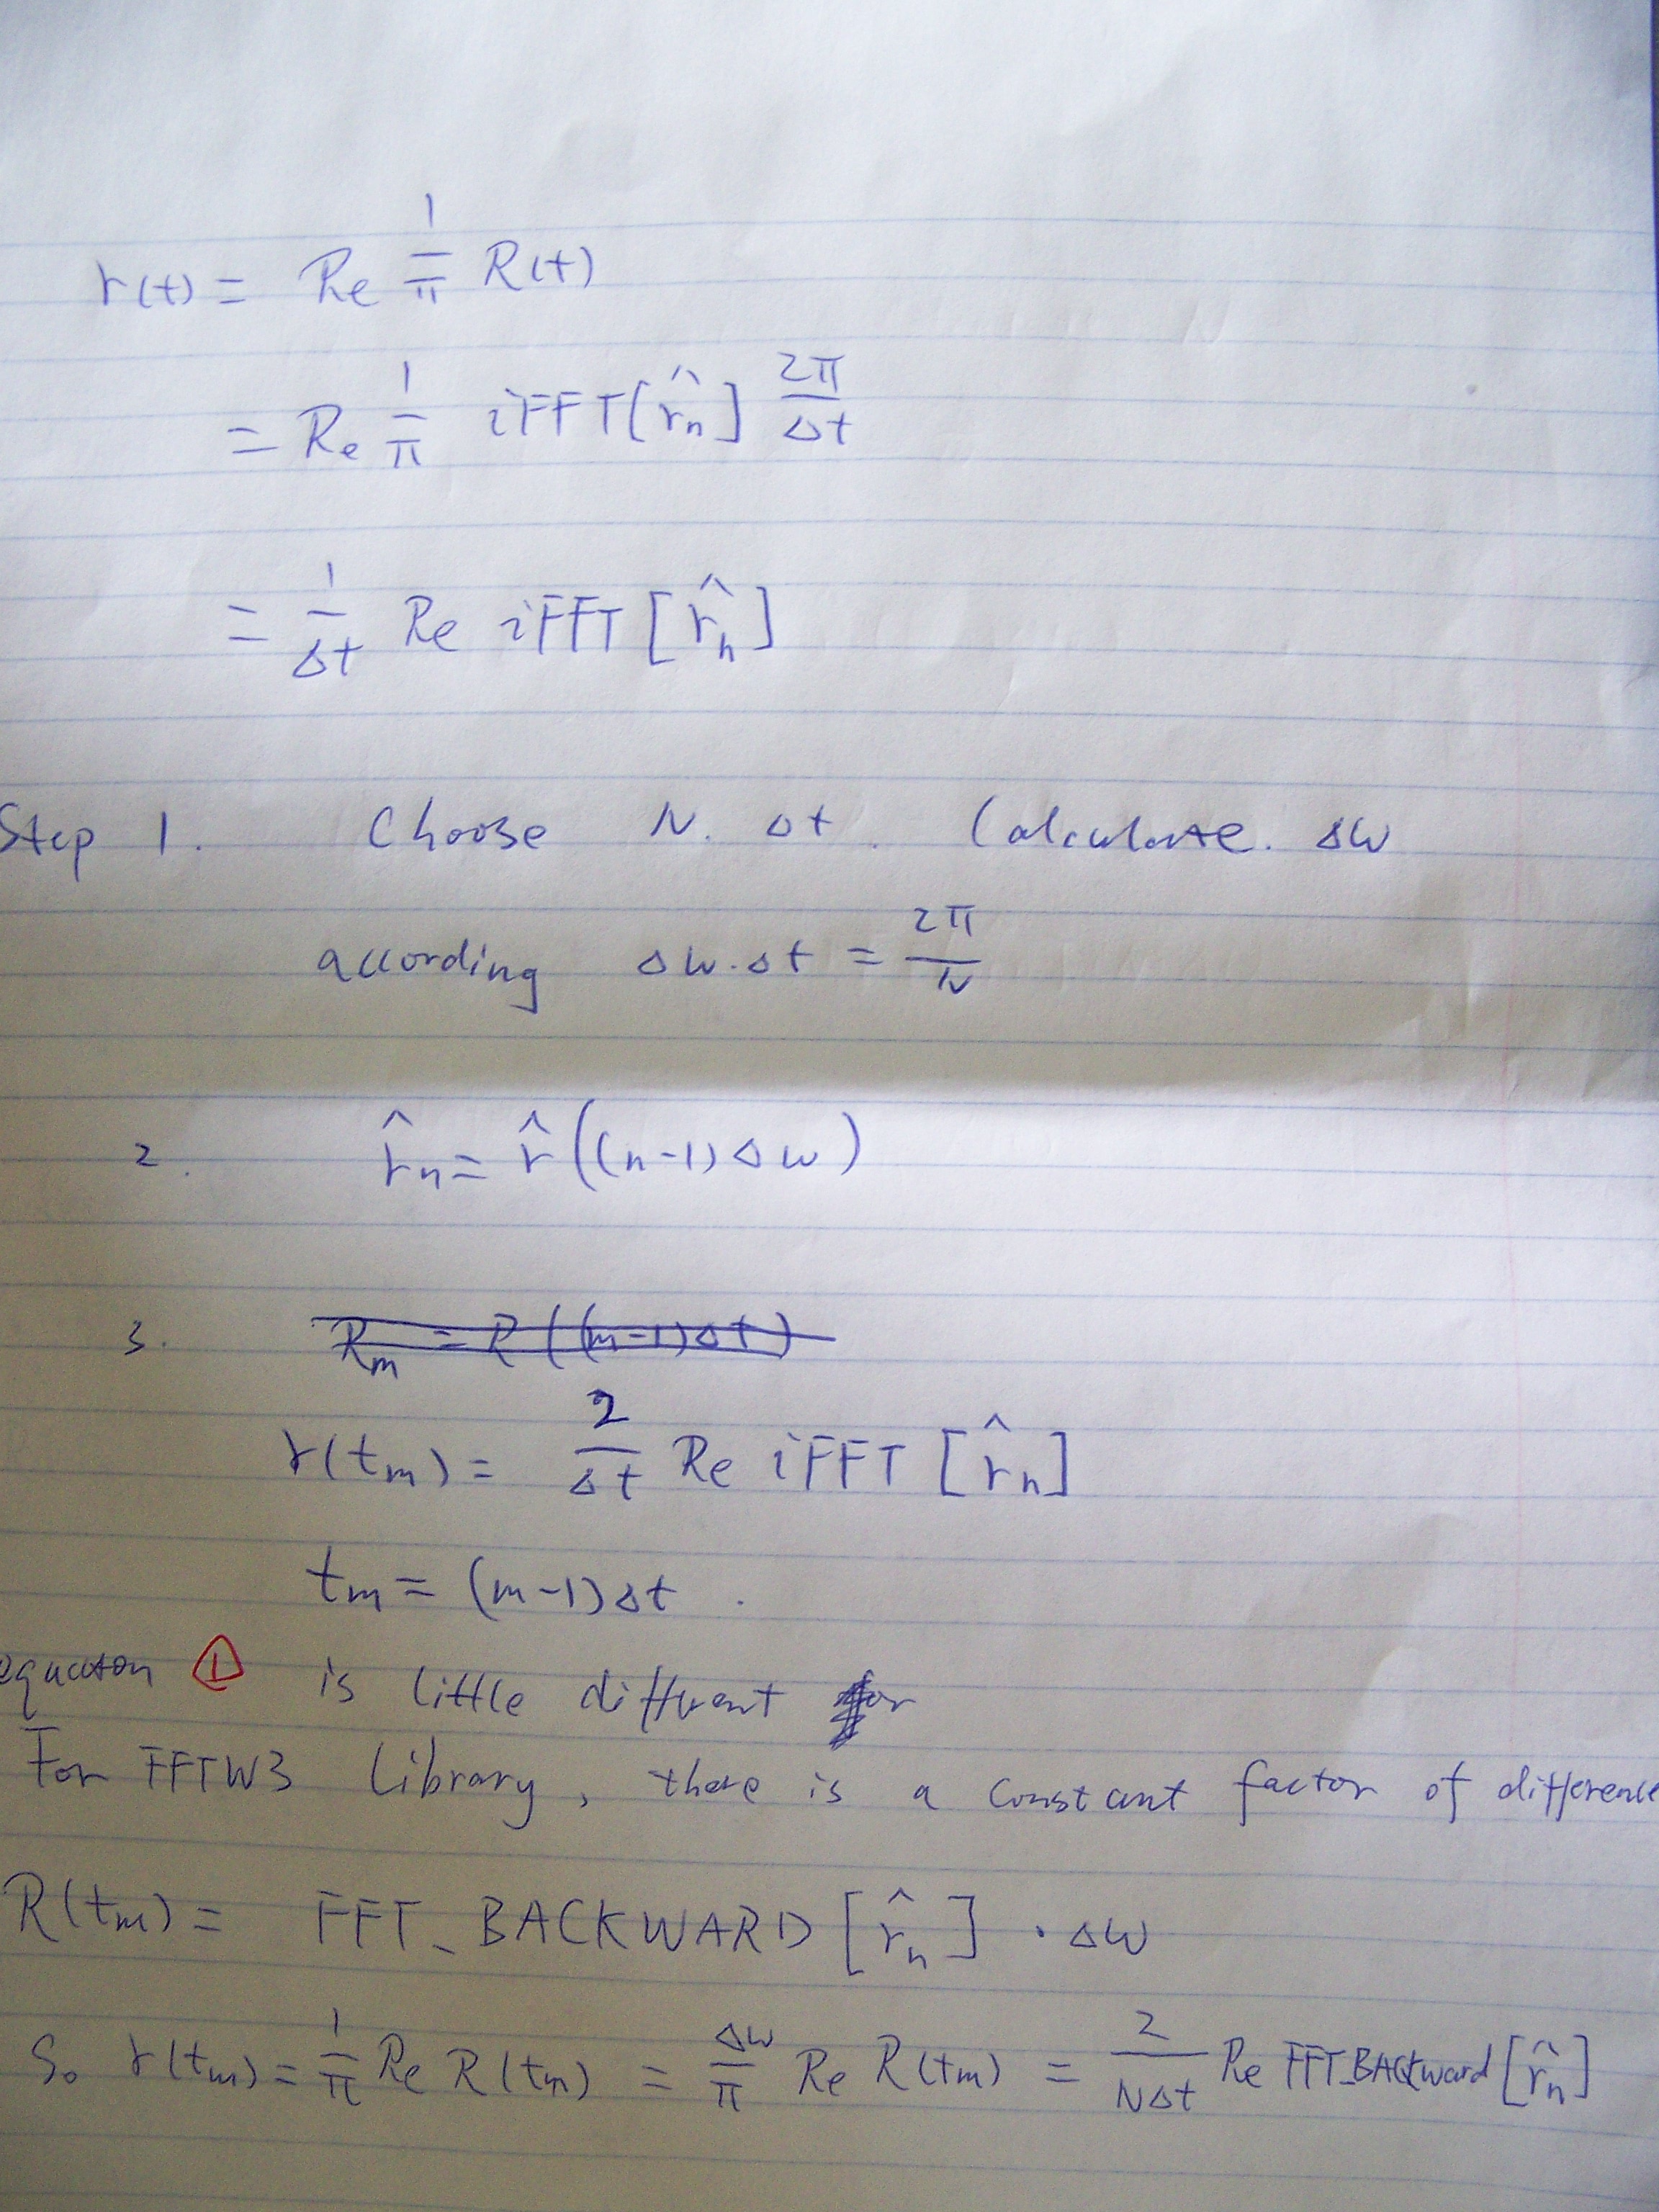 r(t) = Re 1/π R(t)
= Re 1/π iFFT[r̂n] 2π/Δt
= 1/Δt Re iFFT[r̂n]
Step 1. Choose N. Δt. Calculate. Δω
according Δω·Δt = 2π/N
2. r̂n = r̂((n-1)Δω)
3. Rm = R((m-1)Δt)
r(tm) = 2/Δt Re iFFT[r̂n]
tm = (m-1)Δt.
equation ① is little different for
For FFTW3 Library, there is a constant factor of difference
R(tm) = FFT_BACKWARD[r̂n] · Δω
So r(tm) = 1/π Re R(tm) = Δω/π Re R(tm) = 2/NΔt Re FFT_BACKward[r̂n]